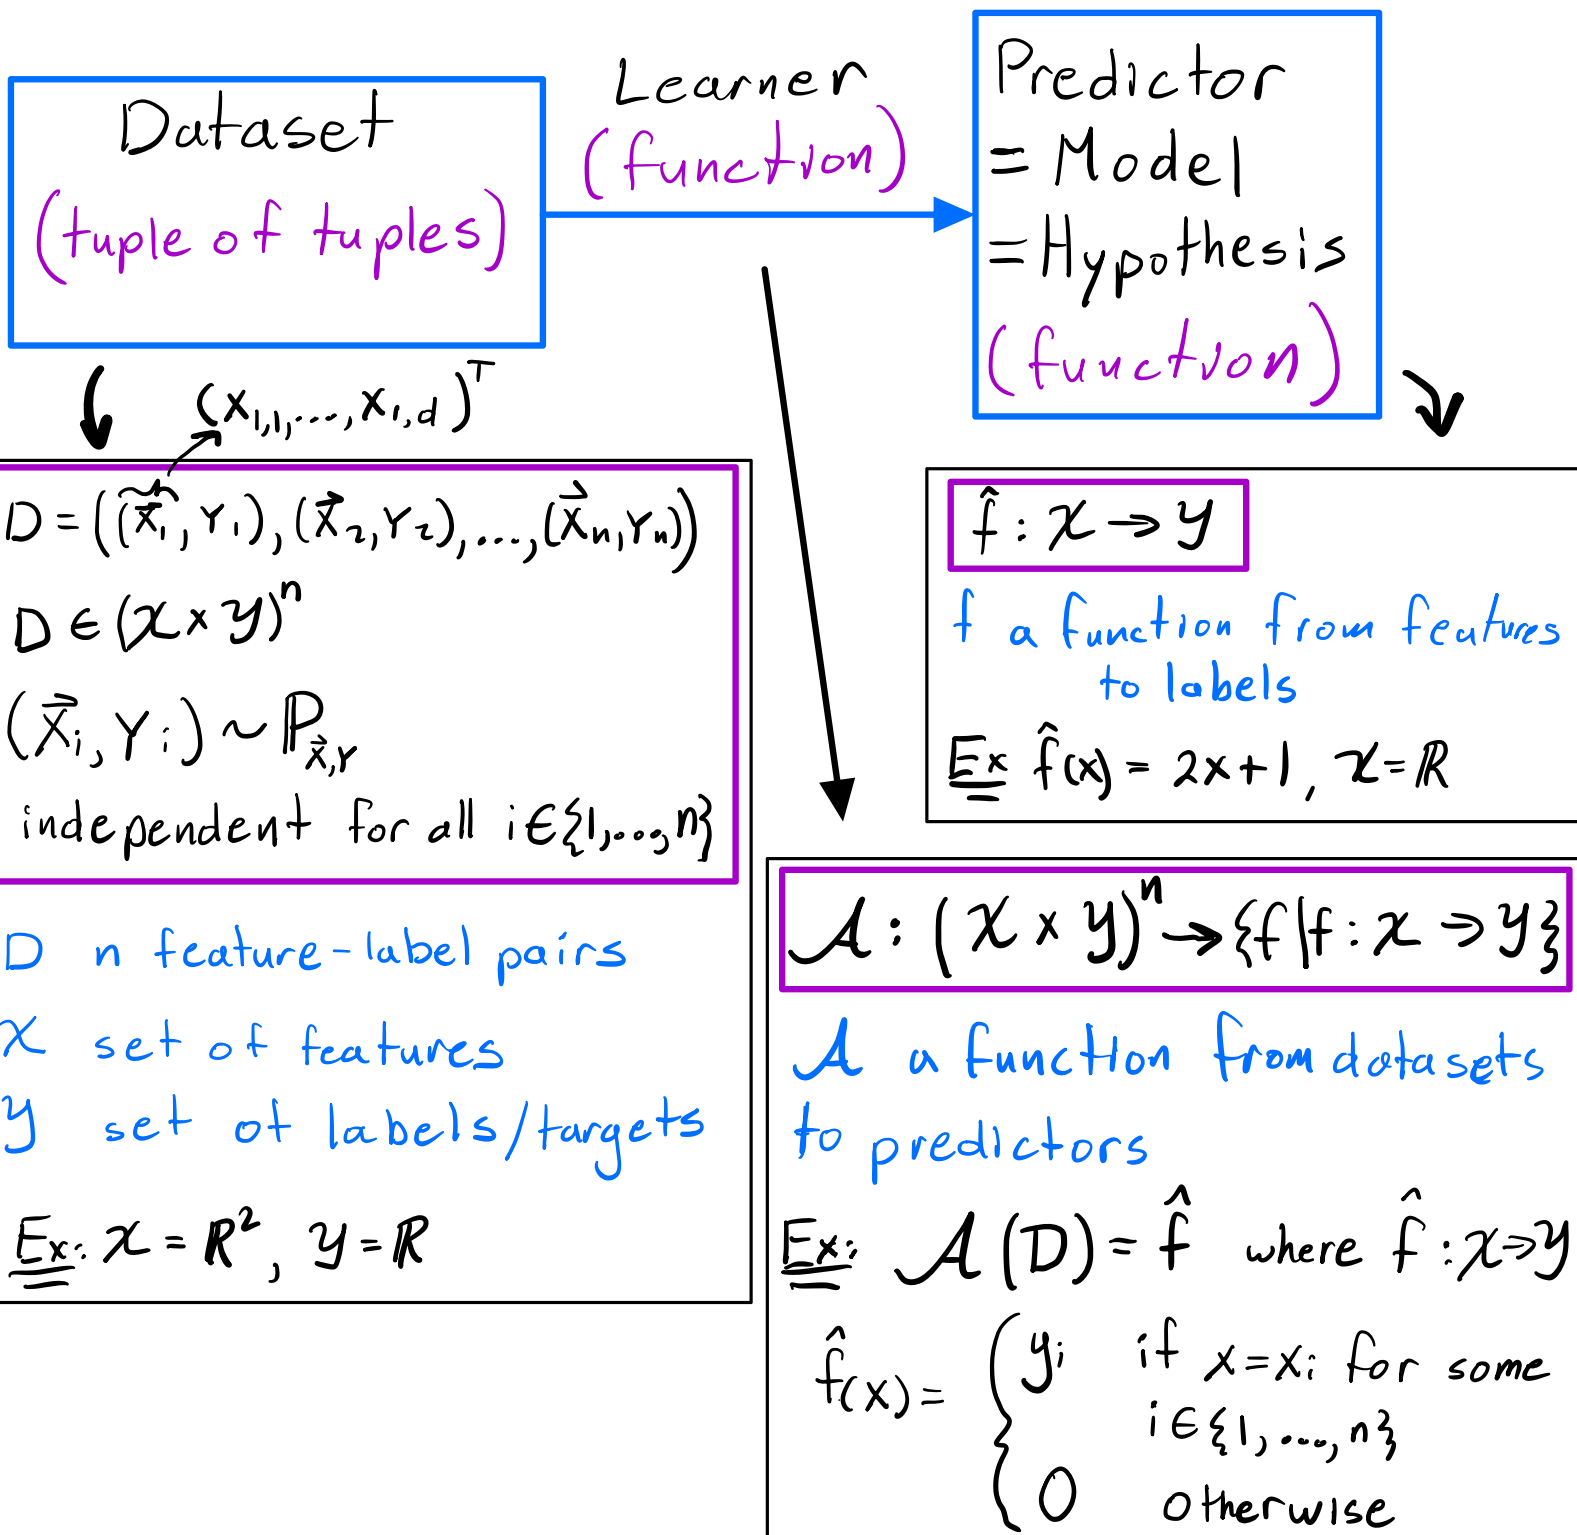 Dataset
(tuple of tuples)
Learner
(function)
Predictor
= Model
= Hypothesis
(function)
(X₁,₁,...,X₁,d)ᵀ
D = ((X⃗₁, Y₁), (X⃗₂, Y₂),..., (X⃗ₙ, Yₙ))
D ∈ (𝒳 × 𝒴)ⁿ
(X⃗ᵢ, Yᵢ) ~ ℙ_X⃗,Y
independent for all i∈{1,...,n}
D n feature-label pairs
𝒳 set of features
𝒴 set of labels/targets
Ex: 𝒳 = ℝ², 𝒴 = ℝ
f̂ : 𝒳 → 𝒴
f a function from features
to labels
Ex f̂(x) = 2x+1, 𝒳 = ℝ
𝒜 : (𝒳 × 𝒴)ⁿ → {f|f : 𝒳 → 𝒴}
𝒜 a function from datasets
to predictors
Ex: 𝒜(D) = f̂ where f̂ : 𝒳 → 𝒴
f̂(x) = { yᵢ if x = xᵢ for some
i∈{1,...,n}
0 otherwise